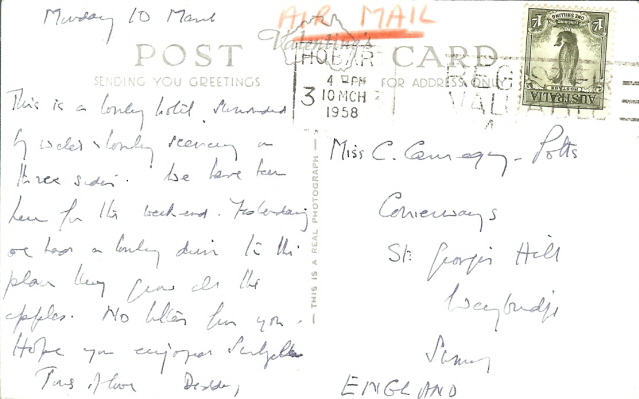 Monday 10 March
AIR MAIL
Valentine's
POST CARD
SENDING YOU GREETINGS
FOR ADDRESS ONLY
HOBART
4 PM
10 MCH
1958
3
AUSTRALIA
ONE SHILLING
THIS IS A REAL PHOTOGRAPH
This is a lovely hotel, surrounded
by water & lovely scenery on
three sides. We have been
here for the weekend. Yesterday
we had a lovely drive to the
place they grow all the
apples. No letters from you.
Hope you enjoyed
Daddy
Miss C. Potts
St. George's Hill
Weybridge
Surrey
ENGLAND